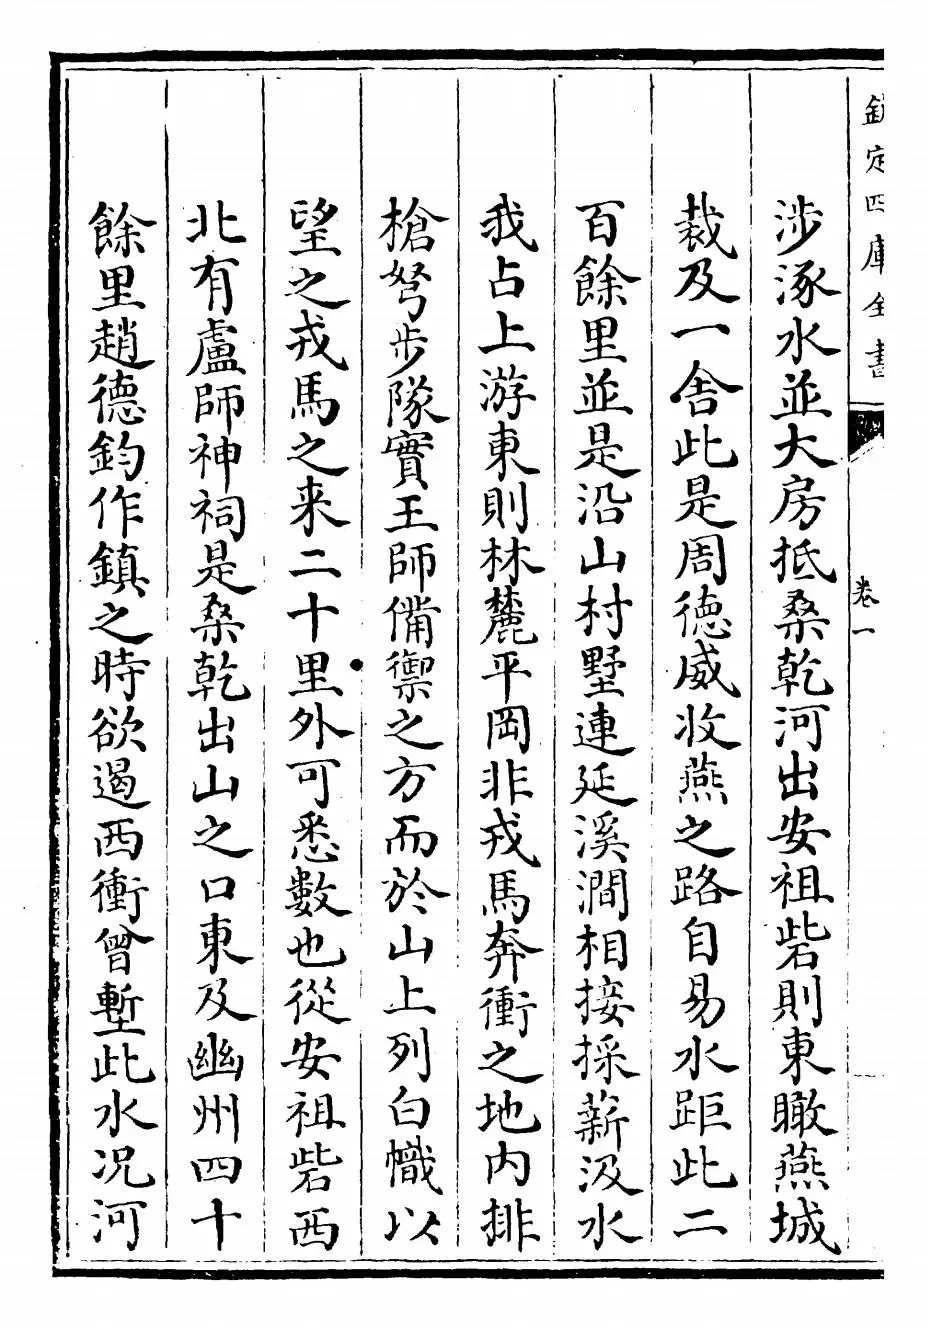 欽定四庫全書
卷一
涉涿水並大房抵桑乾河出安祖砦則東瞰燕城
裁及一舍此是周德威收燕之路自易水距此二
百餘里並是沿山村墅連延溪澗相接採薪汲水
我占上游東則林麓平岡非戎馬奔衝之地内排
槍弩步隊實王師備禦之方而於山上列白幟以
望之戎馬之来二十里外可悉數也從安祖砦西
北有盧師神祠是桑乾出山之口東及幽州四十
餘里趙德鈞作鎮之時欲遏西衝曾塹此水况河